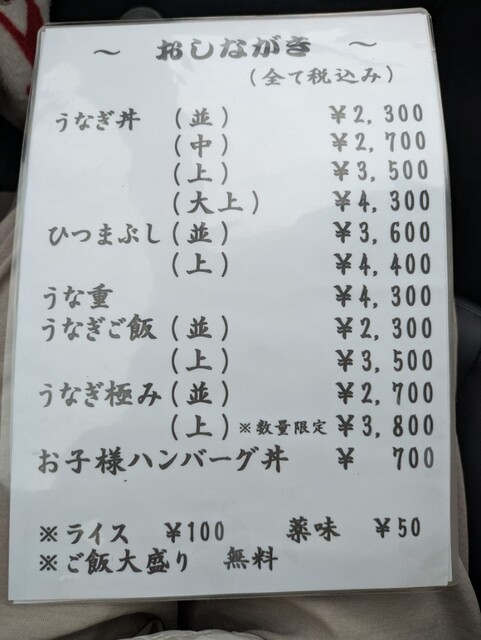 ～ おしながき ～
(全て税込み)
うなぎ丼 (並) ¥2,300
(中) ¥2,700
(上) ¥3,500
(大上) ¥4,300
ひつまぶし(並) ¥3,600
(上) ¥4,400
うな重 ¥4,300
うなぎご飯(並) ¥2,300
(上) ¥3,500
うなぎ極み(並) ¥2,700
(上)※数量限定 ¥3,800
お子様ハンバーグ丼 ¥ 700
※ライス ¥100 薬味 ¥50
※ご飯大盛り 無料